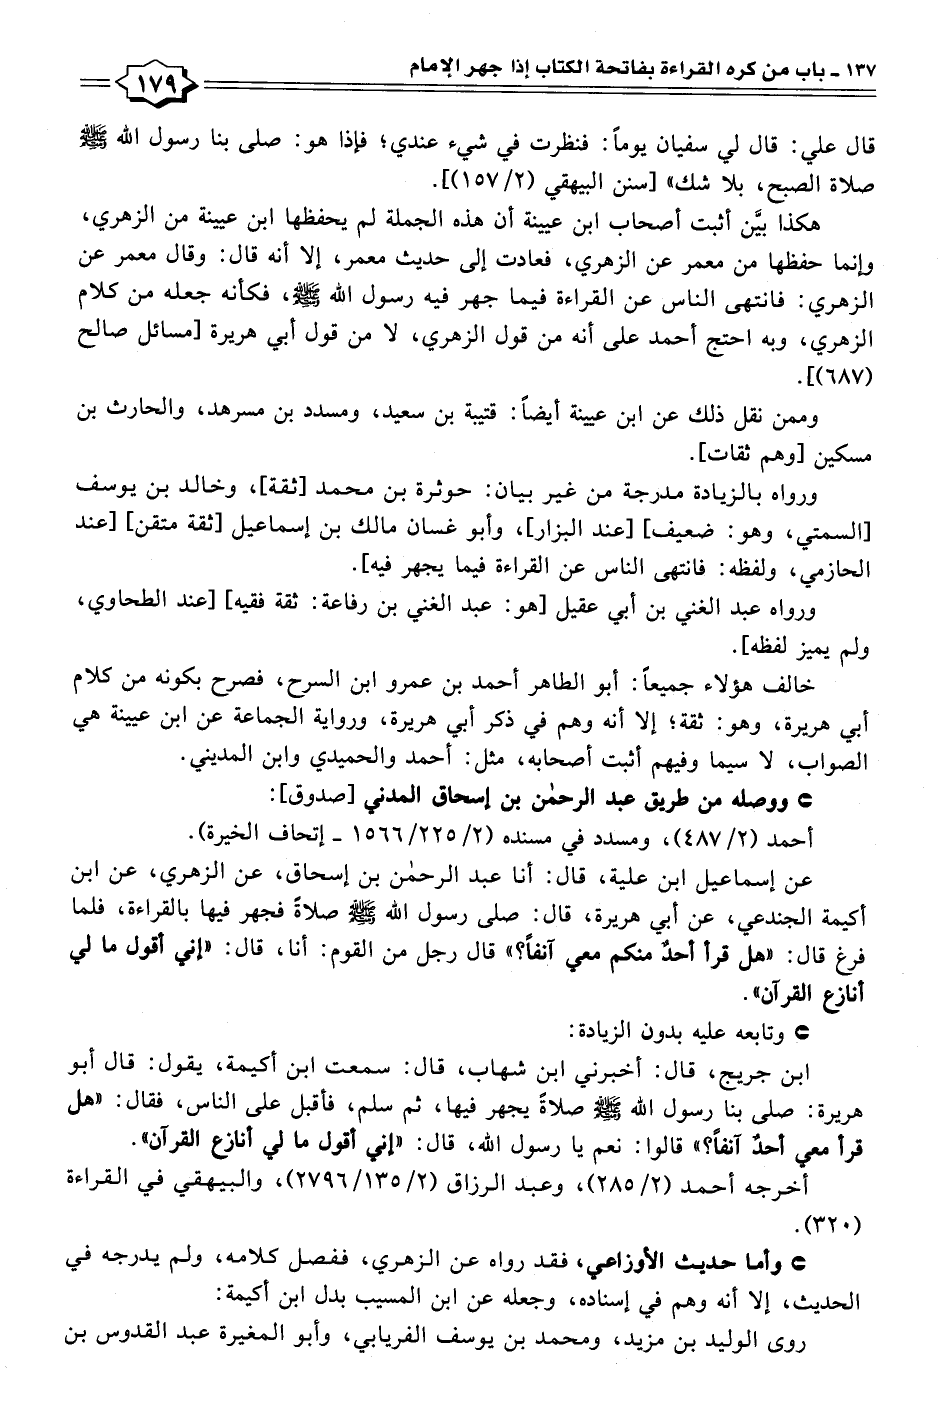 ١٣٧ - باب من كره القراءة بفاتحة الكتاب إذا جهر الإمام
١٧٩
قال علي: قال لي سفيان يوماً: فنظرت في شيء عندي؛ فإذا هو: صلى بنا رسول الله ﷺ
صلاة الصبح، بلا شك» [سنن البيهقي (٢/ ١٥٧)].
هكذا بيَّن أثبت أصحاب ابن عيينة أن هذه الجملة لم يحفظها ابن عيينة من الزهري،
وإنما حفظها من معمر عن الزهري، فعادت إلى حديث معمر، إلا أنه قال: وقال معمر عن
الزهري: فانتهى الناس عن القراءة فيما جهر فيه رسول الله ﷺ، فكأنه جعله من كلام
الزهري، وبه احتج أحمد على أنه من قول الزهري، لا من قول أبي هريرة [مسائل صالح
(٦٨٧)].
وممن نقل ذلك عن ابن عيينة أيضاً: قتيبة بن سعيد، ومسدد بن مسرهد، والحارث بن
مسكين [وهم ثقات].
ورواه بالزيادة مدرجة من غير بيان: حوثرة بن محمد [ثقة]، وخالد بن يوسف
[السمتي، وهو: ضعيف] [عند البزار]، وأبو غسان مالك بن إسماعيل [ثقة متقن] [عند
الحازمي، ولفظه: فانتهى الناس عن القراءة فيما يجهر فيه].
ورواه عبد الغني بن أبي عقيل [هو: عبد الغني بن رفاعة: ثقة فقيه] [عند الطحاوي،
ولم يميز لفظه].
خالف هؤلاء جميعاً: أبو الطاهر أحمد بن عمرو ابن السرح، فصرح بكونه من كلام
أبي هريرة، وهو: ثقة؛ إلا أنه وهم في ذكر أبي هريرة، ورواية الجماعة عن ابن عيينة هي
الصواب، لا سيما وفيهم أثبت أصحابه، مثل: أحمد والحميدي وابن المديني.
⊂ ووصله من طريق عبد الرحمٰن بن إسحاق المدني [صدوق]:
أحمد (٢/ ٤٨٧)، ومسدد في مسنده (٢/ ٢٢٥/ ١٥٦٦ - إتحاف الخيرة).
عن إسماعيل ابن علية، قال: أنا عبد الرحمٰن بن إسحاق، عن الزهري، عن ابن
أكيمة الجندعي، عن أبي هريرة، قال: صلى رسول الله ﷺ صلاةً فجهر فيها بالقراءة، فلما
فرغ قال: «هل قرأ أحدٌ منكم معي آنفاً؟» قال رجل من القوم: أنا، قال: «إني أقول ما لي
أنازع القرآن».
⊂ وتابعه عليه بدون الزيادة:
ابن جريج، قال: أخبرني ابن شهاب، قال: سمعت ابن أكيمة، يقول: قال أبو
هريرة: صلى بنا رسول الله ﷺ صلاةً يجهر فيها، ثم سلم، فأقبل على الناس، فقال: «هل
قرأ معي أحدٌ آنفاً؟» قالوا: نعم يا رسول الله، قال: «إني أقول ما لي أنازع القرآن».
أخرجه أحمد (٢/ ٢٨٥)، وعبد الرزاق (٢/ ١٣٥/ ٢٧٩٦)، والبيهقي في القراءة
(٣٢٠).
⊂ وأما حديث الأوزاعي، فقد رواه عن الزهري، ففصل كلامه، ولم يدرجه في
الحديث، إلا أنه وهم في إسناده، وجعله عن ابن المسيب بدل ابن أكيمة:
روى الوليد بن مزيد، ومحمد بن يوسف الفريابي، وأبو المغيرة عبد القدوس بن